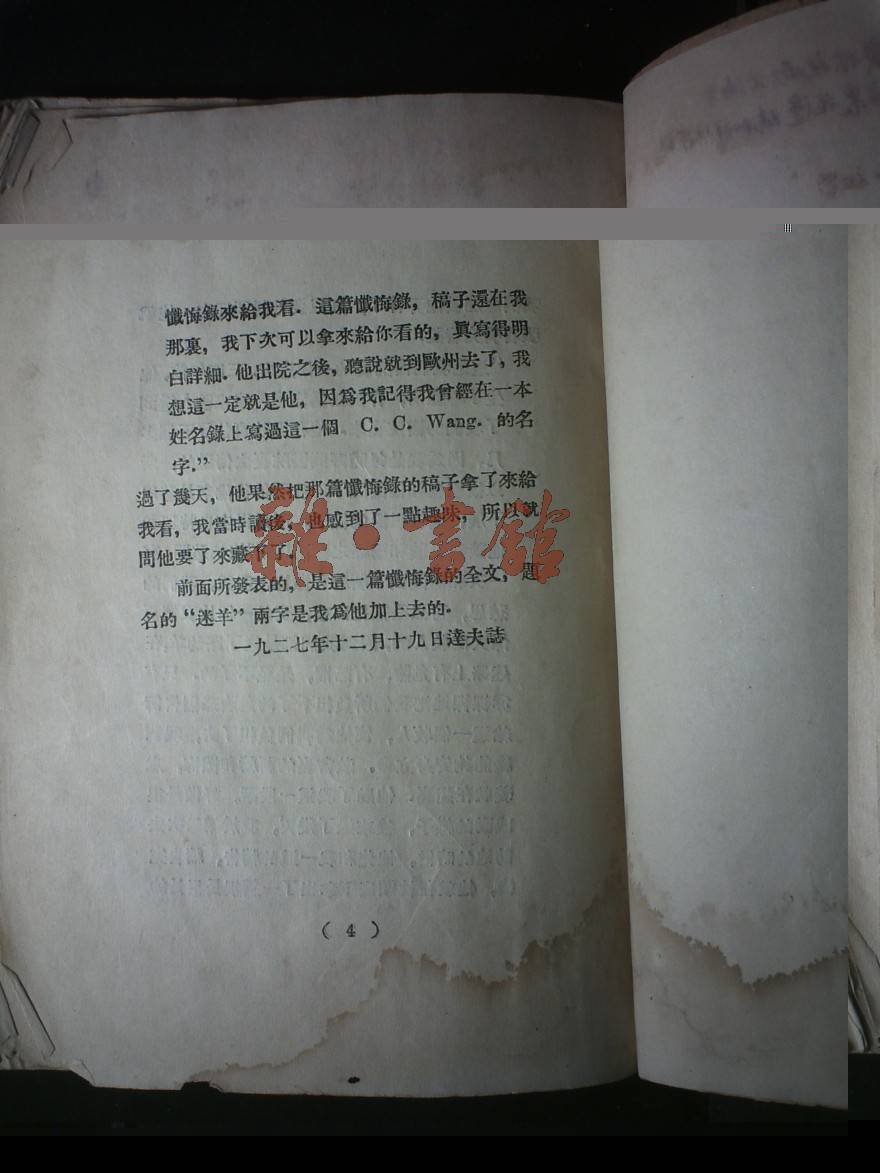 懺悔錄來給我看. 這篇懺悔錄, 稿子還在我
那裏, 我下次可以拿來給你看的, 眞寫得明
白詳細. 他出院之後, 聽說就到歐州去了, 我
想這一定就是他, 因爲我記得我曾經在一本
姓名錄上寫過這一個 C. C. Wang. 的名
字.”
過了幾天, 他果然把那篇懺悔錄的稿子拿了來給
我看, 我當時讀後, 也感到了一點趣味, 所以就
問他要了來藏下了.
前面所發表的, 是這一篇懺悔錄的全文, 題
名的“迷羊”兩字是我爲他加上去的.
一九二七年十二月十九日達夫誌
( 4 )
雜·書館